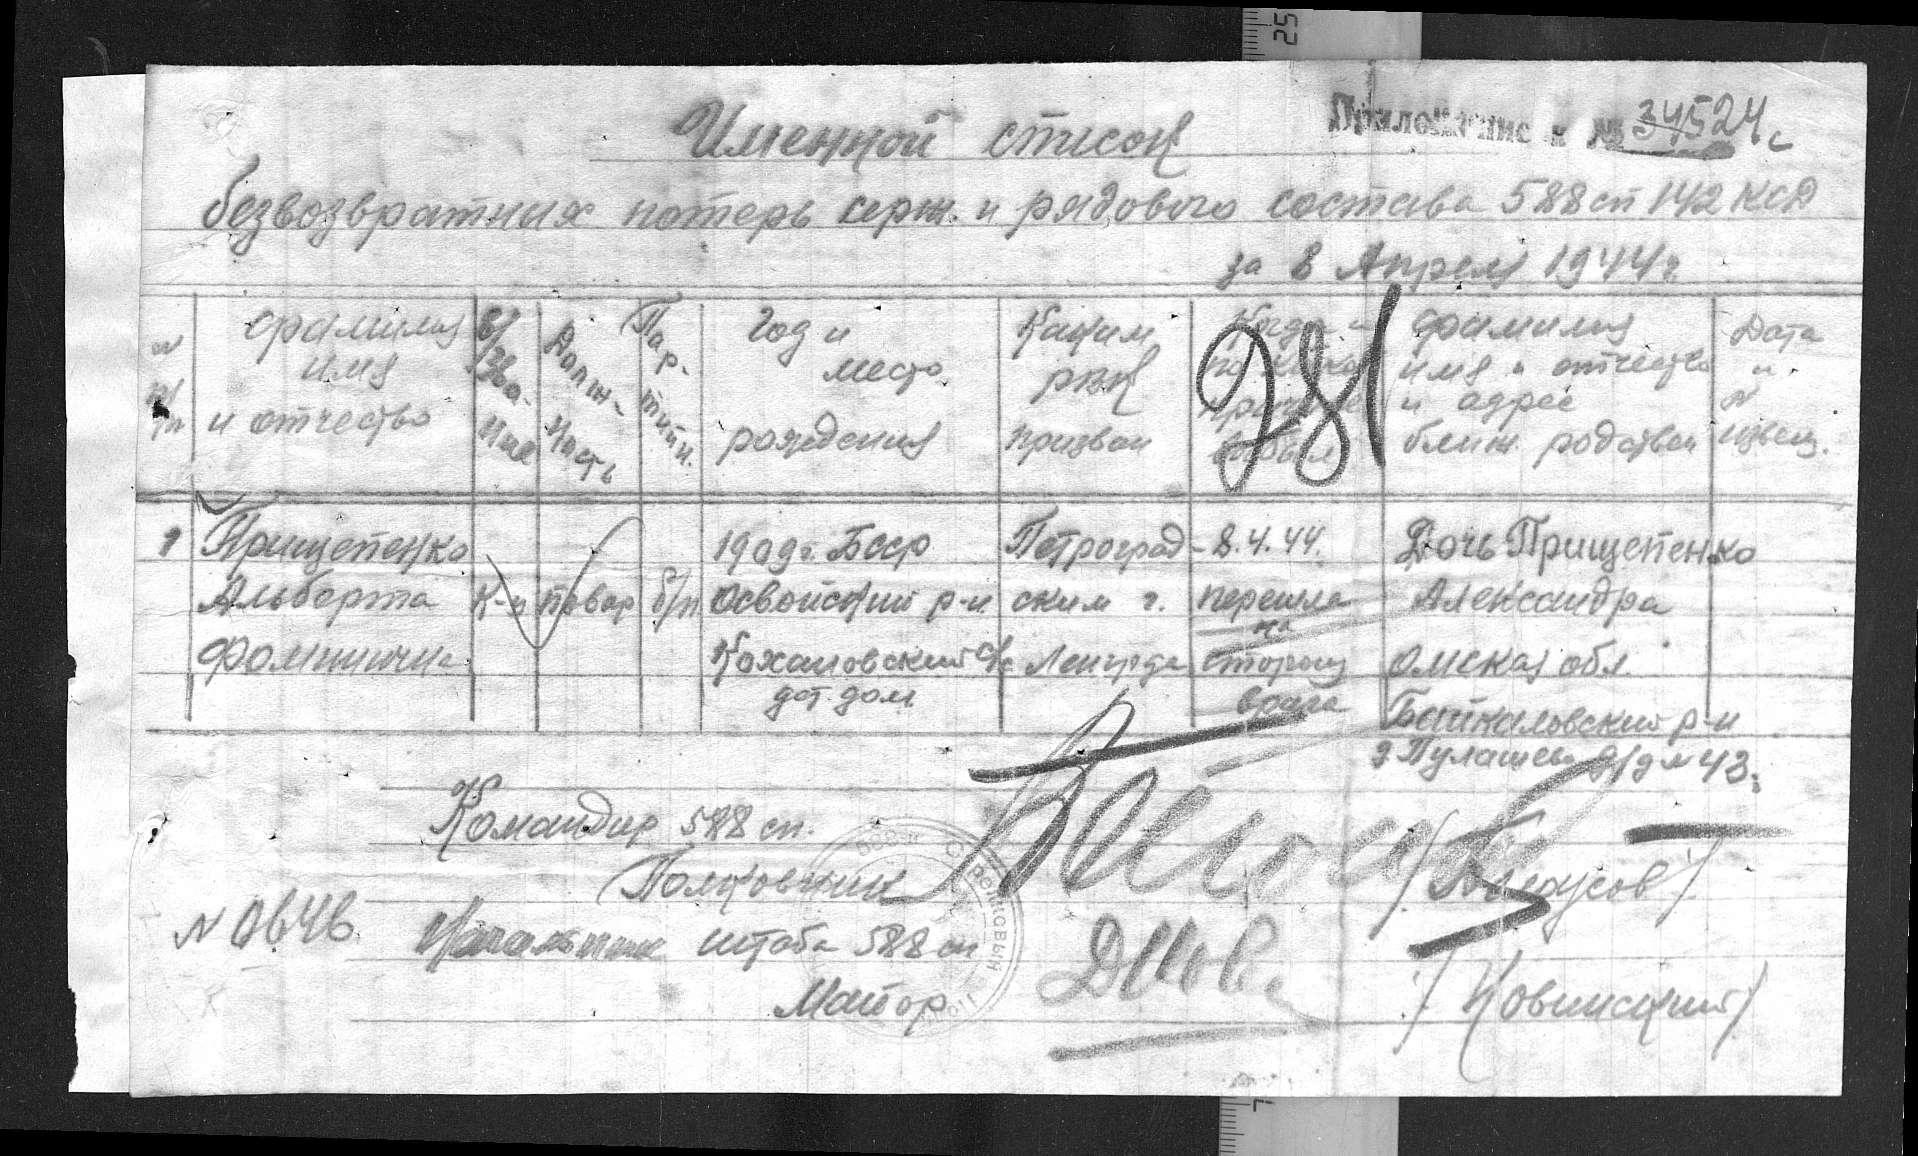 Приложение к № 34524с
Именной список
безвозвратных потерь серж. и рядового состава 588 сп 142 КСД
за 8 Апреля 1944 г
№ пп
фамилия имя и отчество
в/ звание
Должность
Партийн.
Год и место рождения
Каким РВК призван
Когда и по какой причине выбыл
фамилия имя и отчество и адрес ближ. родствен
Дата и № извещ.
281
1 Прищепенко 1909 г. Бсср Петроград- 8.4.44. Дочь Прищепенко
Альберта к-ц повар б/п Освойский р-н. ским г. перешла на Александра
Фоминична Кохановский с/с Ленгрда сторону Омская обл.
дет. дом врага Байкаловский р-н
д Пулашево д/д № 43.
Командир 588 сп.
Полковник /Белоусов/
N 0646 Начальник штаба 588 сп
Майор /Ковинский/